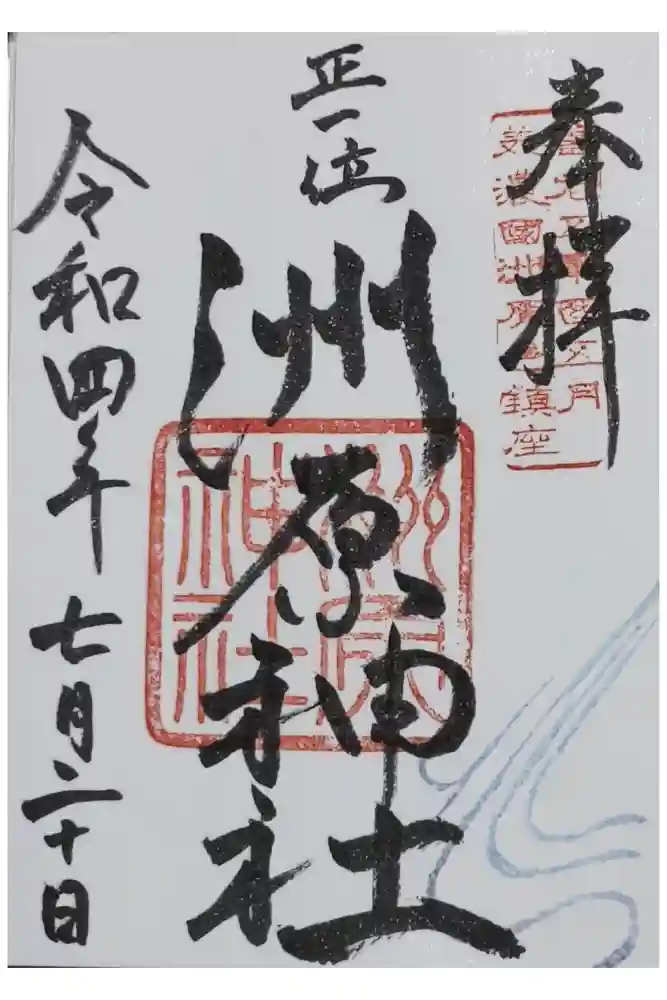 奉拝
五月
美濃國洲原
鎮座
正一位
洲原神社
洲原
神社
令和四年七月二十日